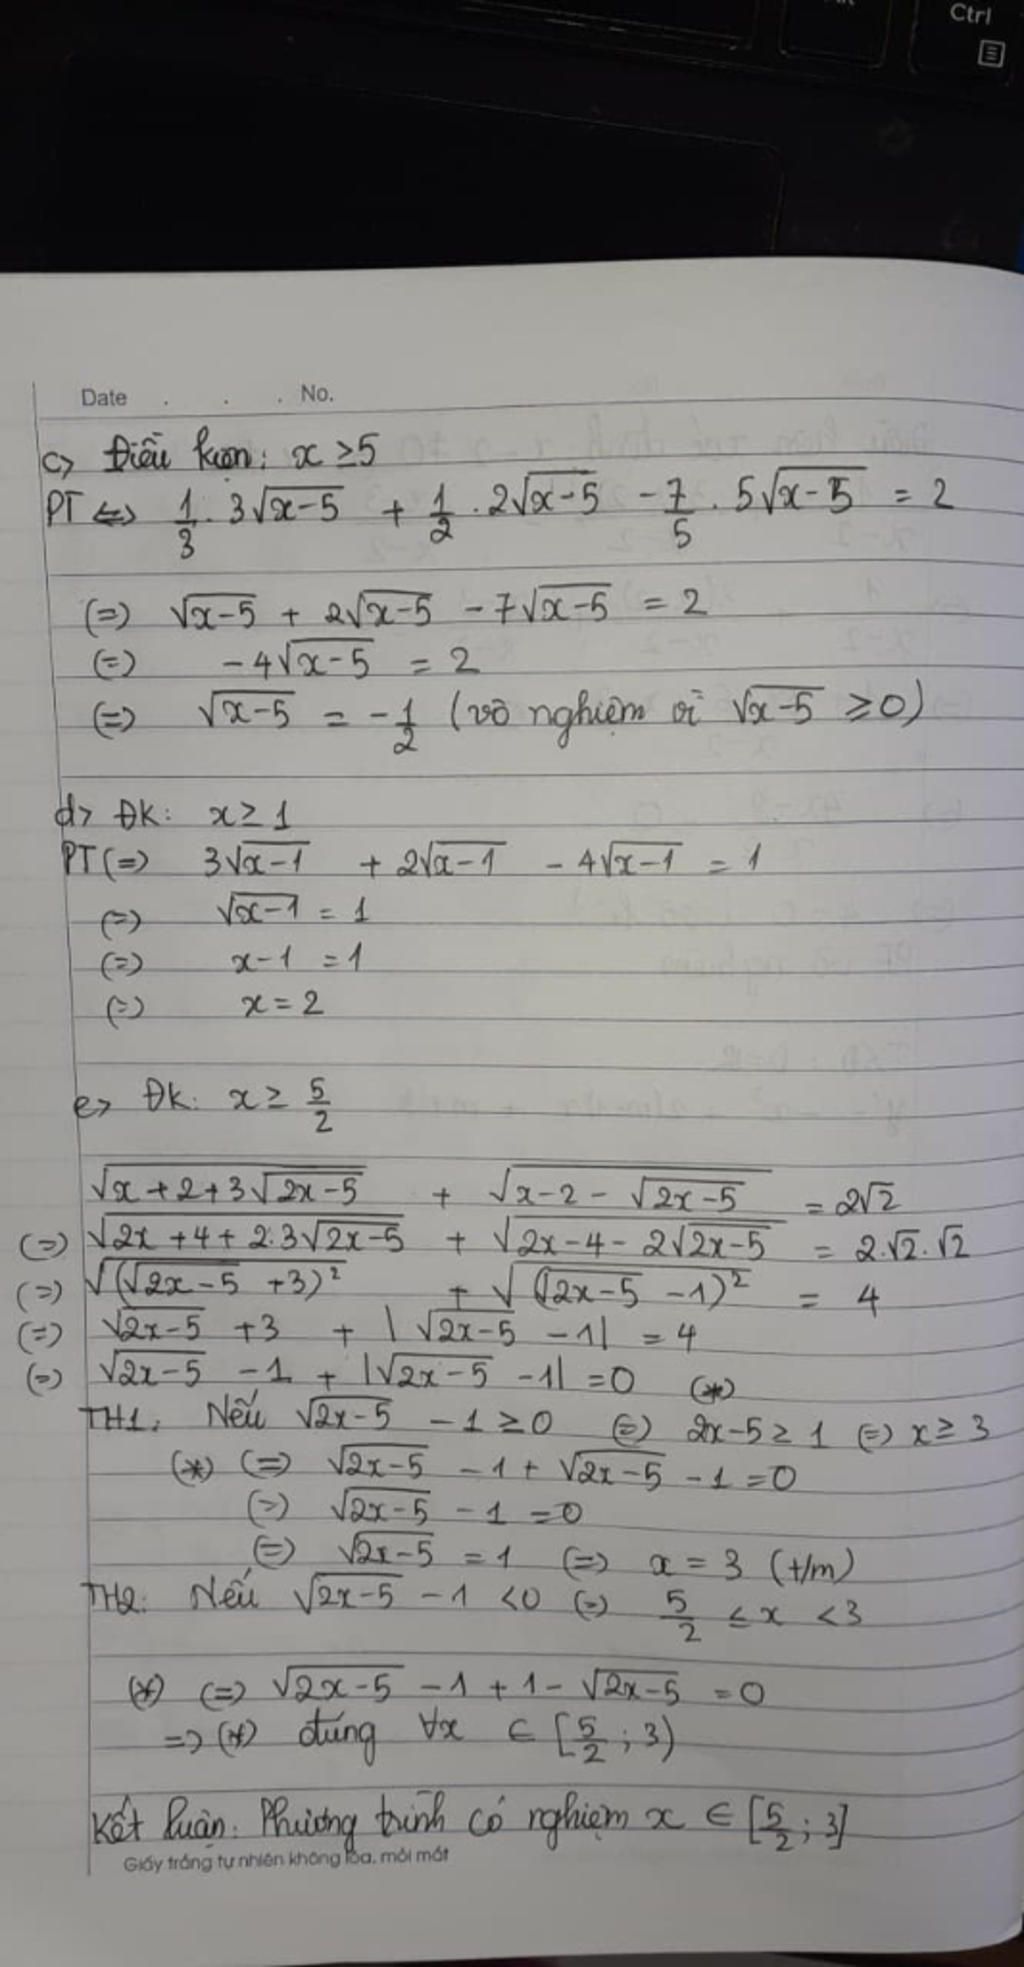 Ctrl
Date . . . No.
c> Điều kiện: x ≥ 5
PT <=> 1/3 . 3√(x-5) + 1/2 . 2√(x-5) - 7/5 . 5√(x-5) = 2
(=) √(x-5) + 2√(x-5) - 7√(x-5) = 2
(=) -4√(x-5) = 2
(=) √(x-5) = -1/2 (vô nghiệm vì √(x-5) ≥ 0)
d> ĐK: x ≥ 1
PT (=) 3√(x-1) + 2√(x-1) - 4√(x-1) = 1
(=) √(x-1) = 1
(=) x-1 = 1
(=) x = 2
e> ĐK: x ≥ 5/2
√(x+2+3√(2x-5)) + √(x-2-√(2x-5)) = 2√2
(=) √(2x+4+2.3√(2x-5)) + √(2x-4-2√(2x-5)) = 2.√2.√2
(=) √((√(2x-5) +3)²) + √((√(2x-5) -1)²) = 4
(=) √(2x-5) +3 + |√(2x-5) -1| = 4
(=) √(2x-5) -1 + |√(2x-5) -1| = 0 (*)
TH1: Nếu √(2x-5) -1 ≥ 0 (=) 2x-5 ≥ 1 (=) x ≥ 3
(*) (=) √(2x-5) -1 + √(2x-5) -1 = 0
(=) √(2x-5) -1 = 0
(=) √(2x-5) = 1 (=) x = 3 (t/m)
TH2: Nếu √(2x-5) -1 < 0 (=) 5/2 ≤ x < 3
(*) (=) √(2x-5) -1 + 1 - √(2x-5) = 0
=> (*) đúng ∀x ∈ [5/2 ; 3)
Kết luận: Phương trình có nghiệm x ∈ [5/2 ; 3]
Giấy trắng tự nhiên không lóa, mỏi mắt